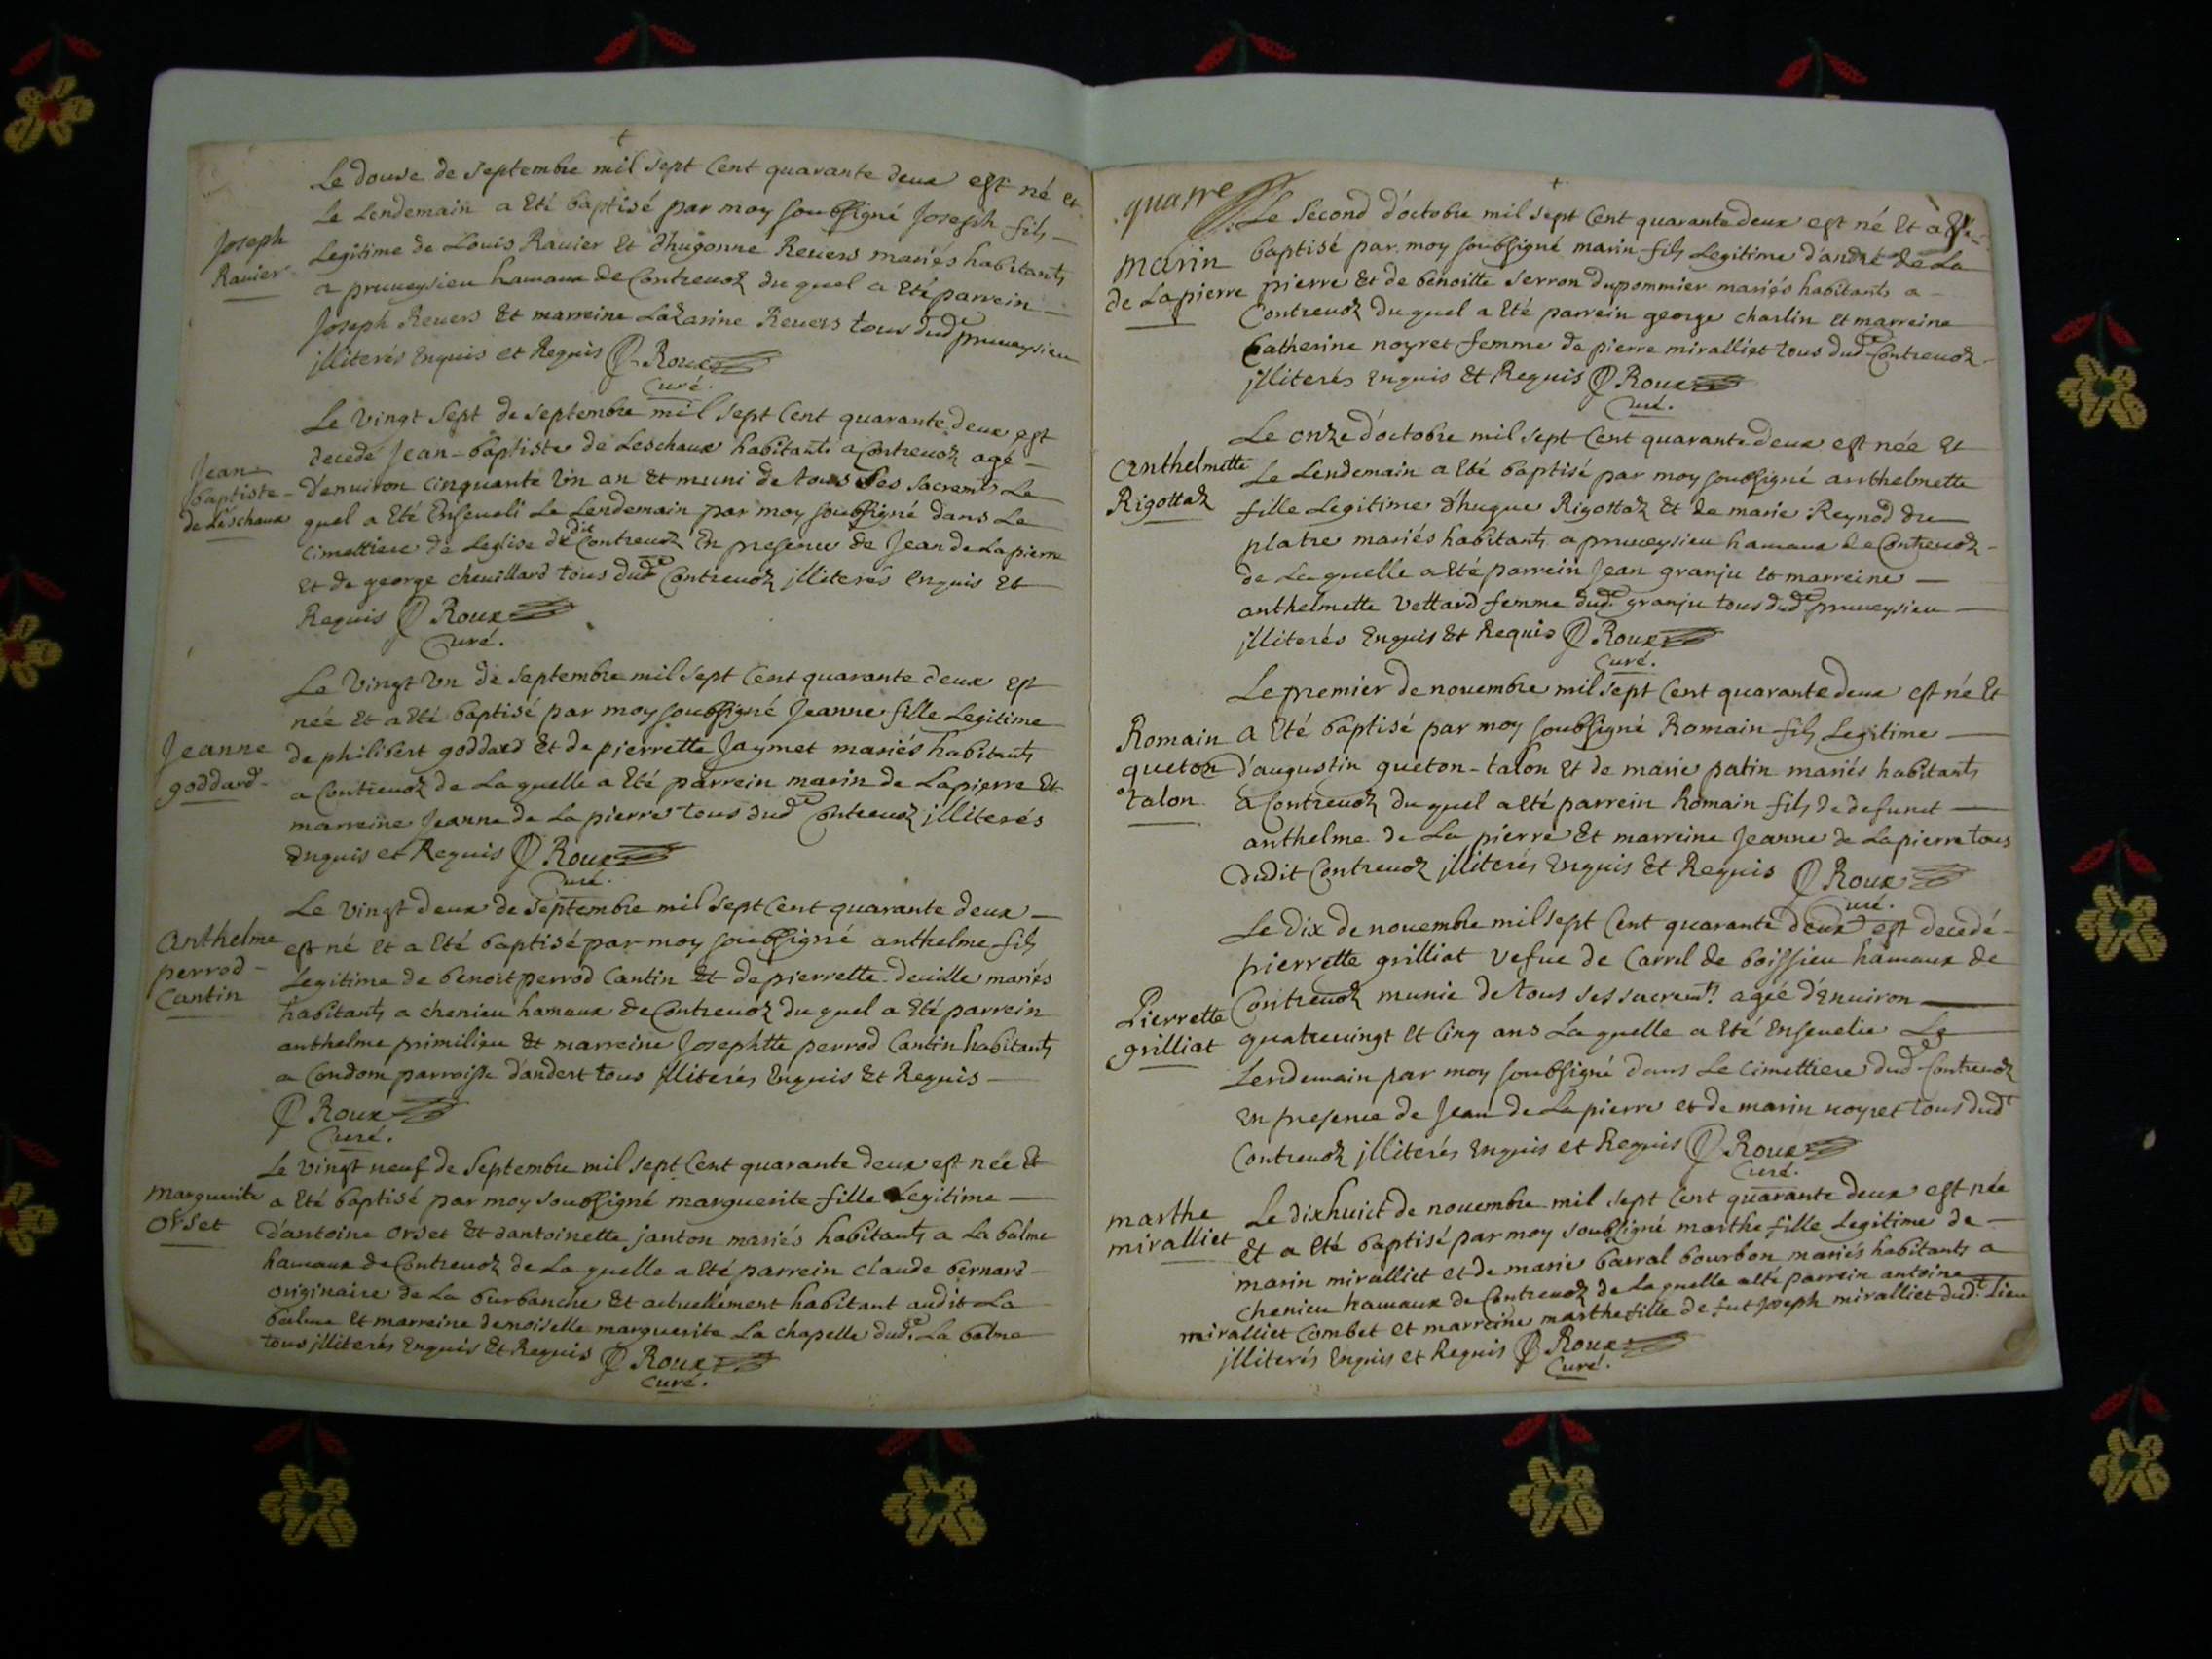 Le douze de septembre mil sept Cent quarante deux est né et
Le Lendemain a Eté baptisé par moy soubsigné Joseph fils
Joseph
Ravier
Legitime de Louis Ravier Et d'hugonne Revers mariés habitants
a pruveysieu hamaux de Contrevoz du quel a Eté parrein
Joseph Revers Et marreine Lazarine Revers tous dud pruveysieu
illiterés Enquis et Requis Roux
Curé.
Le vingt sept de septembre mil sept Cent quarante deux est
decedé Jean-baptiste de Leschaux habitants a Contrevoz agé
Jean
baptiste
de Leschaux
d'environ Cinquante Un an Et muni de tous ses sacremts Le
quel a Eté Enseveli Le Lendemain par moy soubsigné dans Le
Cimettiere de Leglise de dit Contrevoz En presence de Jean de Lapierre
Et de george chevillard tous dud Contrevoz illiterés Enquis Et
Requis Roux
Curé.
Le vingt Un de septembre mil sept Cent quarante deux Est
née Et a Eté baptisé par moy soubsigné Jeanne fille Legitime
Jeanne
goddard
de philibert goddard Et de pierrette Jaymet mariés habitants
a Contrevoz de La quelle a Eté parrein marin de Lapierre Et
marreine Jeanne de La pierre tous dud Contrevoz illiterés
Enquis et Requis Roux
Curé.
Le vingt deux de septembre mil sept Cent quarante deux
Anthelme
perrod
Cantin
est né Et a Eté baptisé par moy soubsigné anthelme fils
Legitime de benoit perrod Cantin Et de pierrette deville mariés
habitants a chenieu hamaux de Contrevoz du quel a Eté parrein
anthelme primilieu Et marreine Josephtte perrod Cantin habitants
a Condom parroisse d'andert tous illiterés Enquis Et Requis
Roux
Curé.
Le vingt neuf de Septembre mil sept Cent quarante deux est née Et
marguerite
orset
a Eté baptisé par moy soubsigné marguerite fille Legitime
d'antoine orset Et dantoinette janton mariés habitants a La balme
hamaux de Contrevoz de La quelle a Eté parrein claude bernard
originaire de La burbanche Et actuellement habitant audit La
balme Et marreine demoiselle marguerite La chapelle dud. La balme
tous illiterés Enquis Et Requis Roux
Curé.
quatre
Le second d'octobre mil sept Cent quarante deux est né Et a Eté
marin
de Lapierre
baptisé par moy soubsigné marin fils Legitime d'andré de La
pierre Et de benoitte serron dupommier mariés habitants a
Contrevoz du quel a Eté parrein george charlin Et marreine
Catherine noyret femme de pierre miralliet tous dud Contrevoz
illiterés Enquis Et Requis Roux
Curé.
Le onze d'octobre mil sept Cent quarante deux est née Et
Anthelmette
Rigottaz
Le Lendemain a Eté baptisé par moy soubsigné anthelmette
fille Legitime d'hugue Rigottaz Et de marie Reynod du
platre mariés habitants a pruveysieu hamaux de Contrevoz
de La quelle a Eté parrein Jean granju Et marreine
anthelmette Vettard femme dud. granju tous dud pruveysieu
illiterés Enquis Et Requis Roux
Curé.
Le premier de novembre mil sept Cent quarante deux est né Et
Romain
gueton
talon
a Eté baptisé par moy soubsigné Romain fils Legitime
d'augustin gueton-talon Et de marie patin mariés habitants
a Contrevoz du quel a Eté parrein Romain fils de defunct
anthelme de La pierre Et marreine Jeanne de Lapierre tous
dudit Contrevoz illiterés Enquis Et Requis Roux
Curé.
Le dix de novembre mil sept Cent quarante deux est decedé
pierrette grilliat vefue de Carrel de boissieu hamaux de
Pierrette
grilliat
Contrevoz munie de tous ses sacremts agée d'Environ
quatrevingt Et Cinq ans La quelle a Eté Ensevelie Le
Lendemain par moy soubsigné dans Le Cimettiere dud Contrevoz
En presence de Jean de Lapierre et de marin noyret tous dudt
Contrevoz illiterés Enquis et Requis Roux
Curé.
marthe
miralliet
Le dixhuict de novembre mil sept Cent quarante deux est née
Et a Eté baptisé par moy soubsigné marthe fille Legitime de
marin miralliet et de marie barral bourbon mariés habitants a
chenieu hamaux de Contrevoz de La quelle a Eté parrein antoine
miralliet Combet et marreine marthe fille de fut Joseph miralliet dudt. Lieu
illiterés Enquis et Requis Roux
Curé.